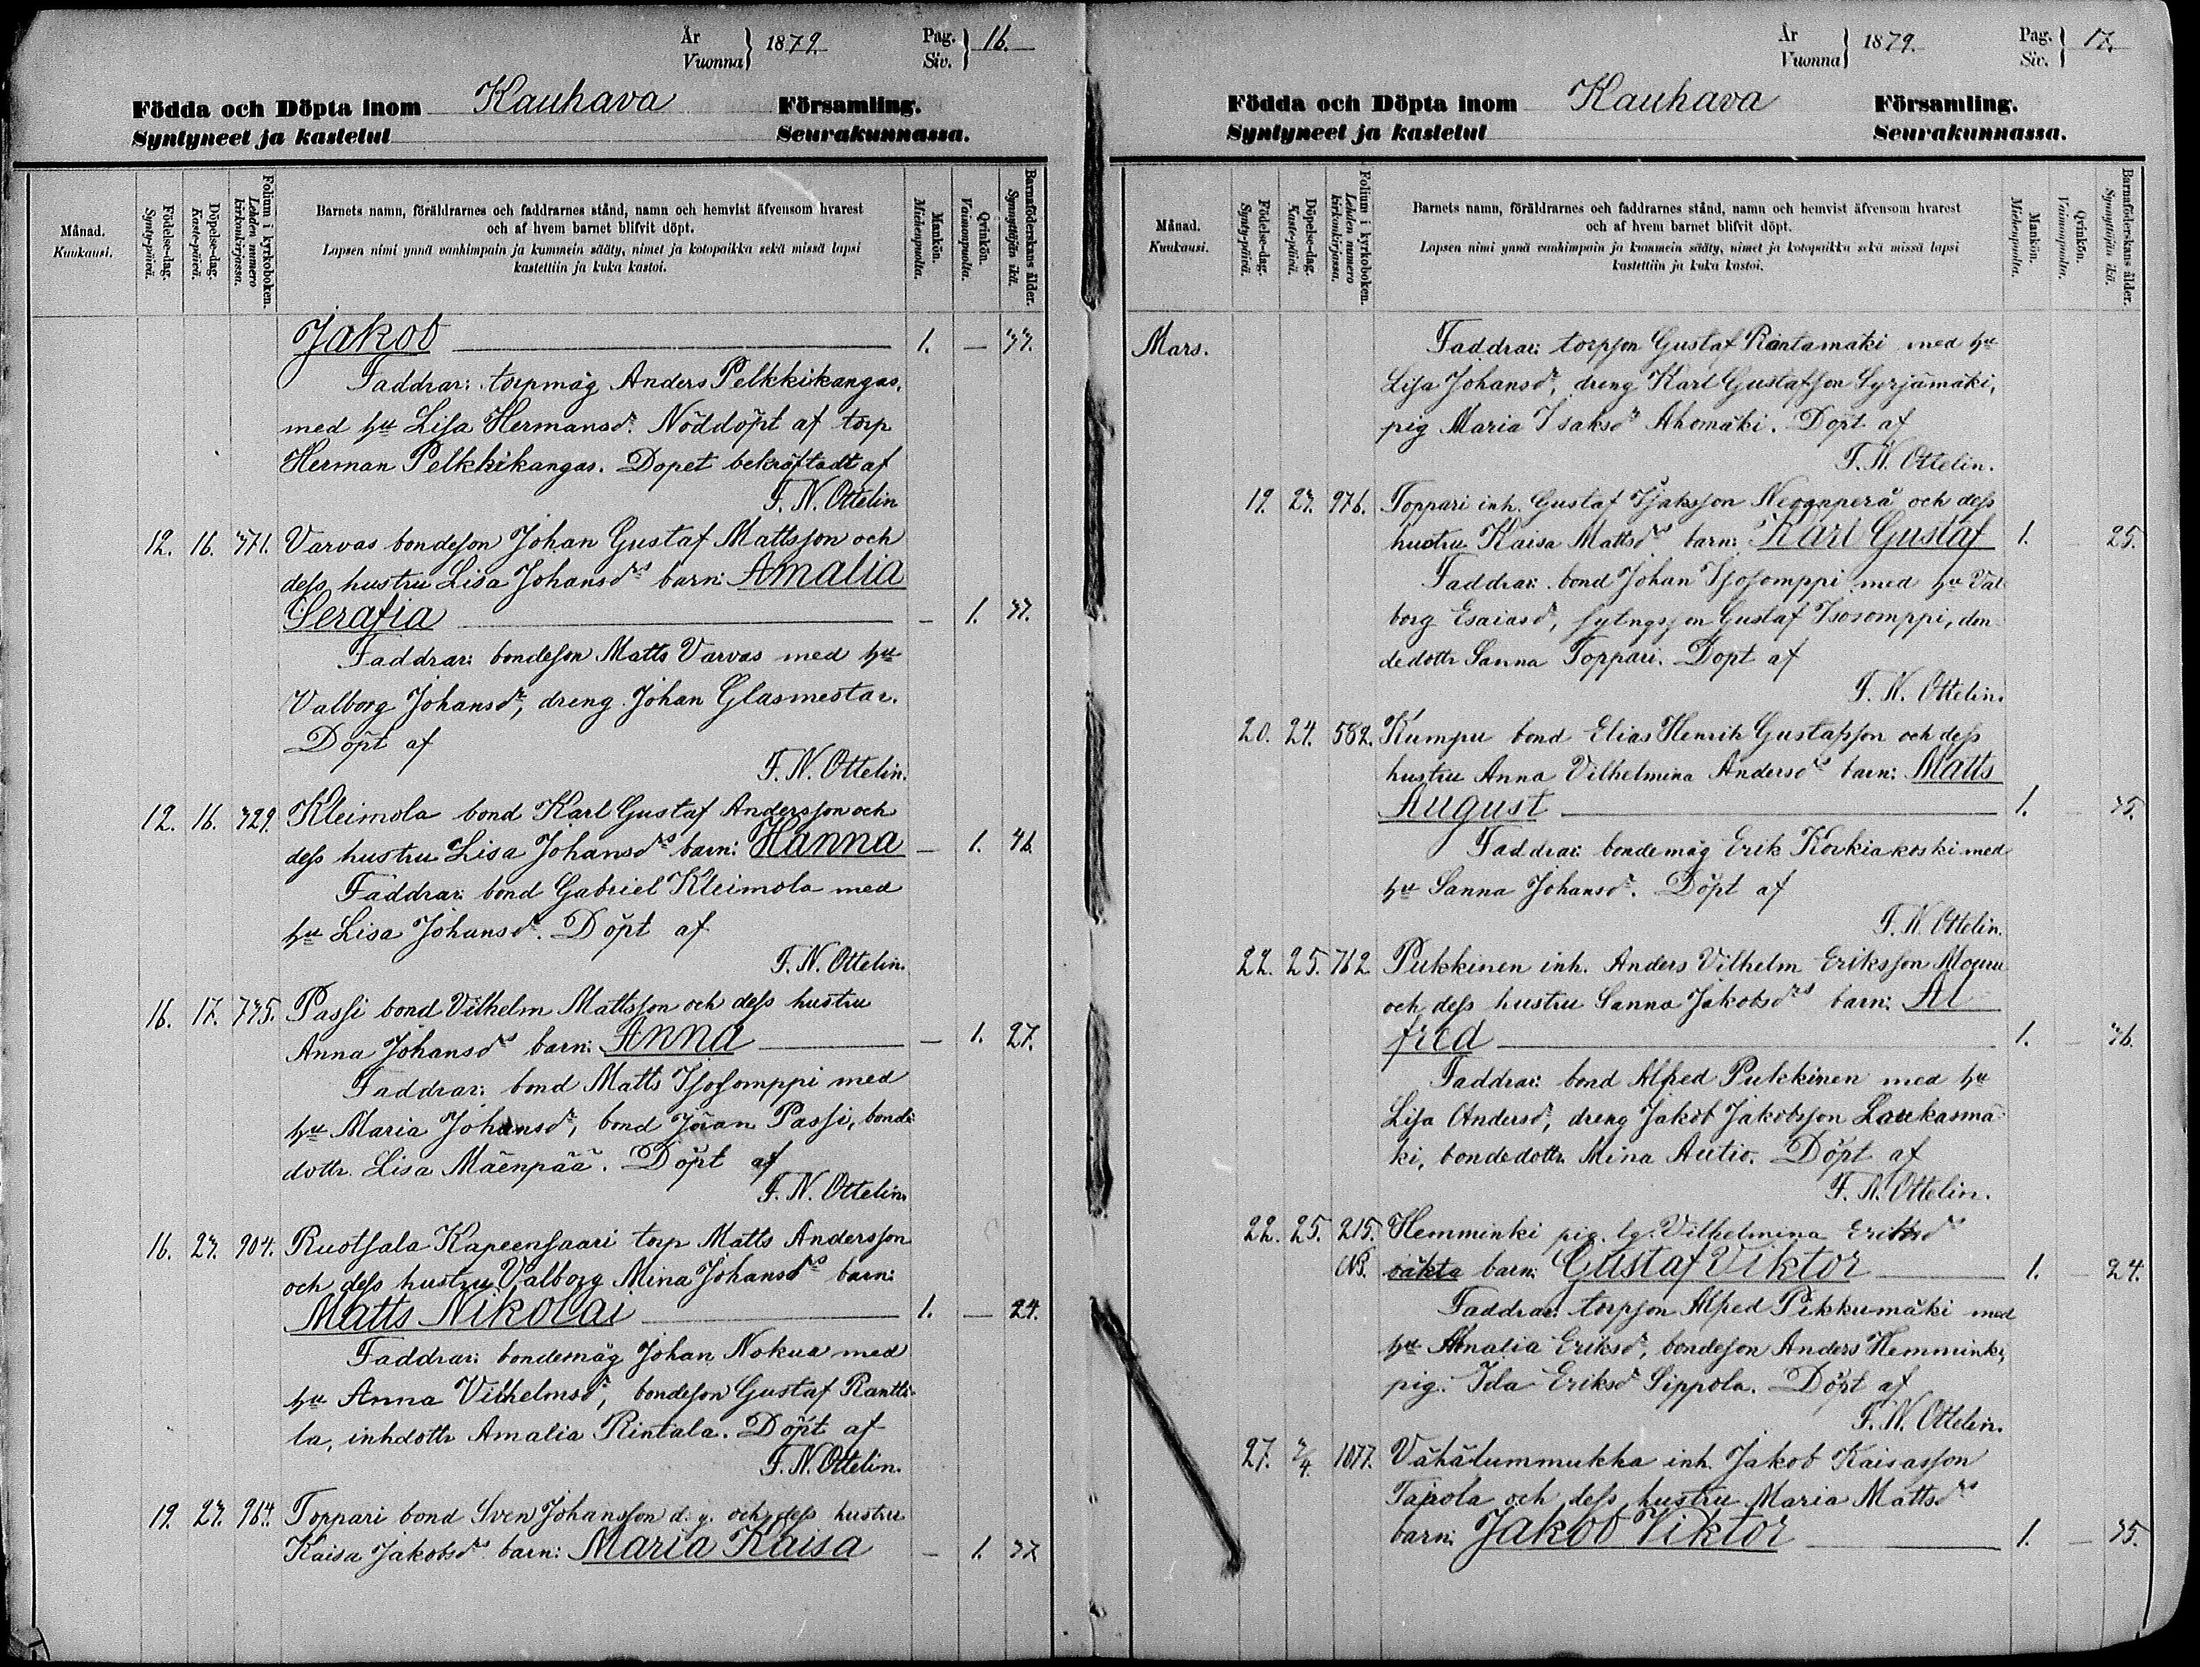 År
Vuonna } 1879.
Pag.
Siv. } 16.
Födda och Döpta inom Kauhava Församling.
Syntyneet ja kastetut Seurakunnassa.
Månad.
Kuukausi.
Födelse-dag.
Synty-päivä.
Döpelse-dag.
Kaste-päivä.
Folium i kyrkoboken.
Lehden numero
kirkonkirjassa.
Barnets namn, föräldrarnes och faddrarnes stånd, namn och hemvist äfvensom hvarest
och af hvem barnet blifvit döpt.
Lapsen nimi ynnä vanhimpain ja kummein sääty, nimet ja kotopaikka sekä missä lapsi
kastettiin ja kuka kastoi.
Mankön.
Miehenpuolta.
Qvinkön.
Vaimonpuolta.
Barnaföderskans ålder.
Synnyttäjän ikä.
Jakob 1. — 37.
Faddrar: torpmåg Anders Pelkkikangas,
med hu Lisa Hermansdr. Nöddöpt af torp
Herman Pelkkikangas. Dopet bekräftadt af
F. N. Ottelin
12. 16. 371. Varvas bondeson Johan Gustaf Mattsson och
dess hustru Lisa Johansdrs barn: Amalia
Serafia — 1. 37.
Faddrar: bondeson Matts Varvas med hu
Valborg Johansdr, dreng Johan Glasmestar.
Döpt af
F. N. Ottelin.
12. 16. 329. Kleimola bond Karl Gustaf Andersson och
dess hustru Lisa Johansdrs barn: Hanna — 1. 46.
Faddrar: bond Gabriel Kleimola med
hu Lisa Johansdr. Döpt af
F. N. Ottelin.
16. 17. 735. Passi bond Vilhelm Mattsson och dess hustru
Anna Johansdrs barn: Anna — 1. 27.
Faddrar: bond Matts Isosomppi med
hu Maria Johansdr, bond Johan Passi, bonde
dottr. Lisa Mäenpää. Döpt af
F. N. Ottelin.
16. 23. 904. Ruotsala Kapeensaari torp Matts Andersson
och dess hustru Valborg Mina Johansdrs barn:
Matts Nikolai 1. — 24.
Faddrar: bondemåg Johan Nokua med
hu Anna Vilhelmsdr, bondeson Gustaf Rantti-
la, inhdottr Amalia Rintala. Döpt af
F. N. Ottelin.
19. 23. 964. Toppari bond Sven Johansson d. y. och dess hustru
Kaisa Jakobsdrs barn: Maria Kaisa — 1. 37.
År
Vuonna } 1879.
Pag.
Siv. } 17.
Födda och Döpta inom Kauhava Församling.
Syntyneet ja kastetut Seurakunnassa.
Månad.
Kuukausi.
Födelse-dag.
Synty-päivä.
Döpelse-dag.
Kaste-päivä.
Folium i kyrkoboken.
Lehden numero
kirkonkirjassa.
Barnets namn, föräldrarnes och faddrarnes stånd, namn och hemvist äfvensom hvarest
och af hvem barnet blifvit döpt.
Lapsen nimi ynnä vanhimpain ja kummein sääty, nimet ja kotopaikka sekä missä lapsi
kastettiin ja kuka kastoi.
Mankön.
Miehenpuolta.
Qvinkön.
Vaimonpuolta.
Barnaföderskans ålder.
Synnyttäjän ikä.
Mars. Faddrar: torpson Gustaf Rantamäki med hu
Lisa Johansdr, dreng Karl Gustafsson Syrjämäki,
pig Maria Isaksdr Ahomäki. Döpt af
F. N. Ottelin.
19. 23. 976. Toppari inh. Gustaf Isaksson och dess
hustru Kaisa Mattsdrs barn: Karl Gustaf 1. — 25.
Faddrar: bond Johan Isosomppi med hu Val
borg Esaiasdr, sytngsson Gustaf Isosomppi, bon
dedottr Sanna Toppari. Döpt af
F. N. Ottelin.
20. 24. 582. Kumpu bond Elias Henrik Gustafsson och dess
hustru Anna Vilhelmina Andersdrs barn: Matts
August 1. — 35.
Faddrar: bondemåg Erik Korkiakoski med
hu Sanna Johansdr. Döpt af
F. N. Ottelin.
22. 25. 762 Pukkinen inh. Anders Vilhelm Eriksson Mouru
och dess hustru Sanna Jakobsdrs barn: Al
fred 1. — 36.
Faddrar: bond Alfred Pukkinen med hu
Lisa Andersdr, dreng Jakob Jakobsson Laukasmä-
ki, bondedottr Mina Autio. Döpt af
F. N. Ottelin.
22. 25. 215. Hemminki pig. lg. Vilhelmina Eriksdrs
NB. oäkta barn: Gustaf Viktor 1. — 24.
Faddrar: torpson Alfred Pikkumäki med
hu Amalia Eriksdr, bondeson Anders Hemminki,
pig. Ida Eriksdr Sippola. Döpt af
F. N. Ottelin.
27. 3/4. 1077. Vähälummukka inh. Jakob Kaisasson
Tapola och dess hustru Maria Mattsdrs
barn: Jakob Viktor 1. — 35.